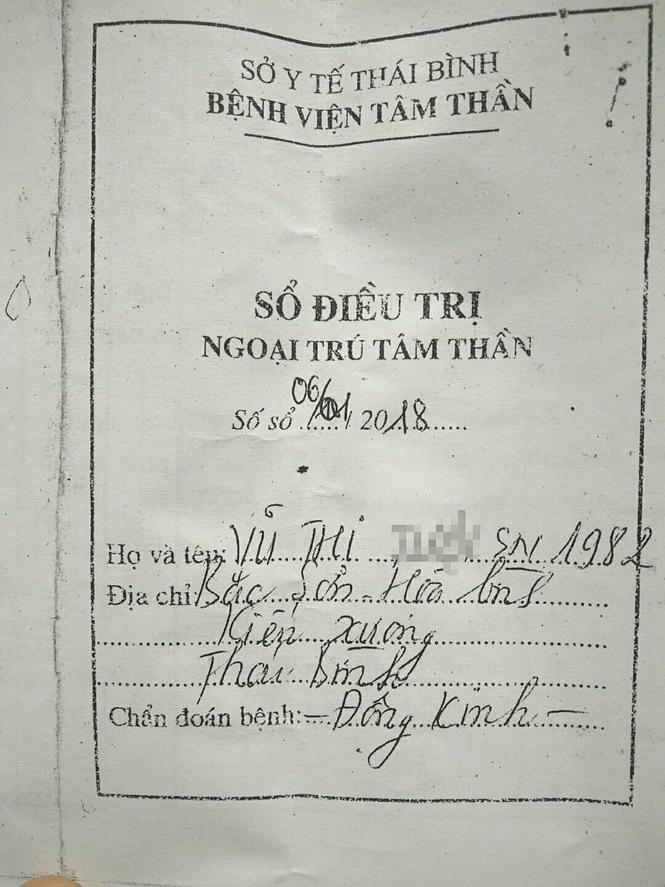 SỞ Y TẾ THÁI BÌNH
BỆNH VIỆN TÂM THẦN
SỔ ĐIỀU TRỊ
NGOẠI TRÚ TÂM THẦN
Số sổ 06/01/2018
Họ và tên: VŨ THỊ SN 1982
Địa chỉ: Bắc Sơn - Hòa bình
Kiến xương
Thái bình
Chẩn đoán bệnh: - Động Kinh -